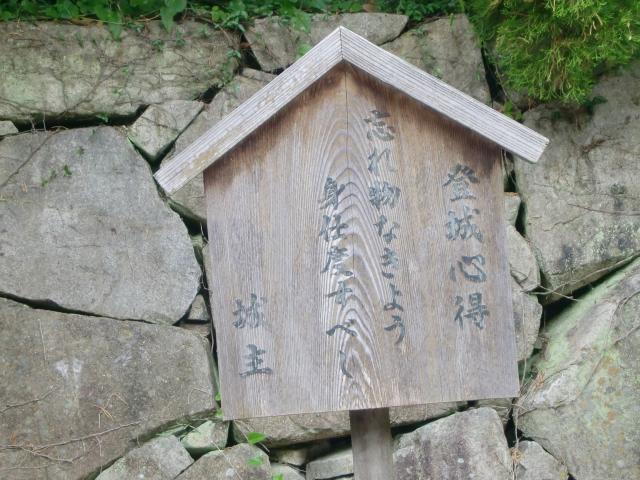 登城心得
忘れ物なきよう
身仕度すべし
城主